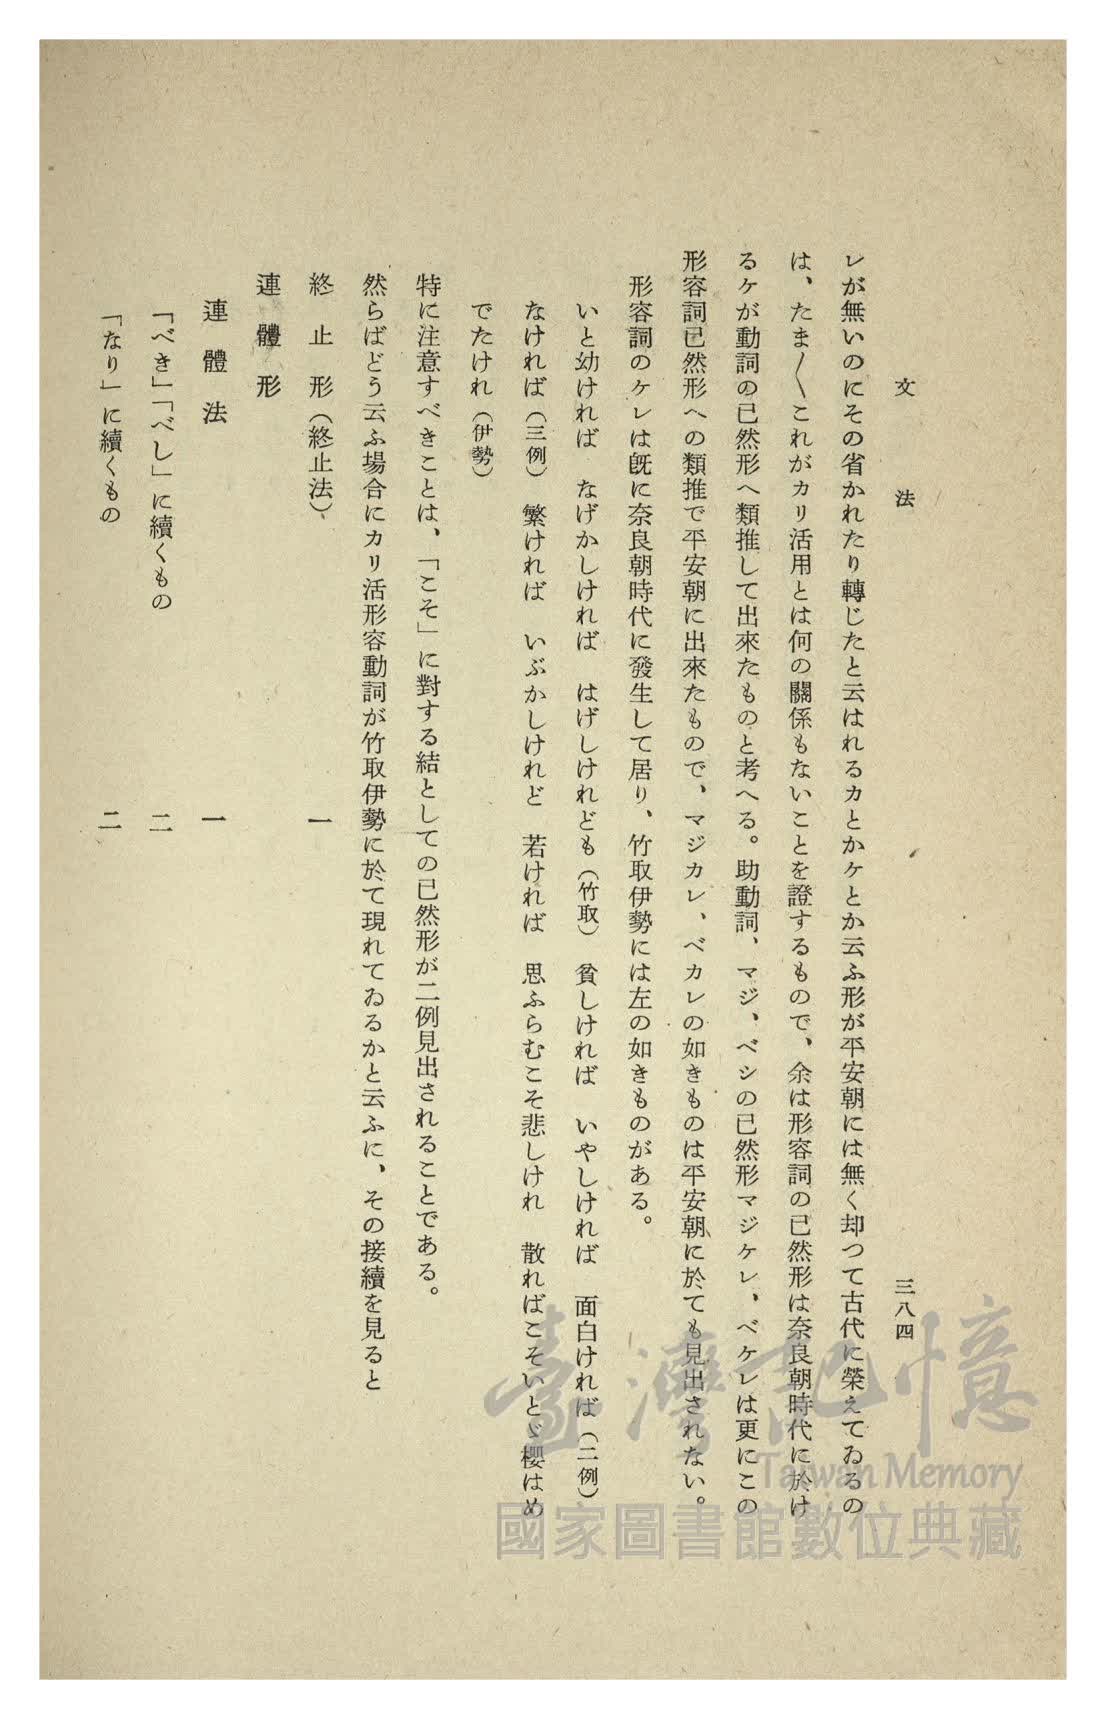 文法
三八四
レが無いのにその省かれたり轉じたと云はれるカとかケとか云ふ形が平安朝には無く却つて古代に榮えてゐるの
は、たま〱これがカリ活用とは何の關係もないことを證するもので、余は形容詞の已然形は奈良朝時代に於け
るケが動詞の已然形へ類推して出來たものと考へる。助動詞、マジ、ベシの已然形マジケレ、ベケレは更にこの
形容詞已然形への類推で平安朝に出來たもので、マジカレ、ベカレの如きものは平安朝に於ても見出されない。
形容詞のケレは既に奈良朝時代に發生して居り、竹取伊勢には左の如きものがある。
いと幼ければ なげかしければ はげしけれども(竹取) 貧しければ いやしければ 面白ければ(二例)
なければ(三例) 繁ければ いぶかしけれど 若ければ 思ふらむこそ悲しけれ 散ればこそいとゞ櫻はめ
でたけれ(伊勢)
特に注意すべきことは、「こそ」に對する結としての已然形が二例見出されることである。
然らばどう云ふ場合にカリ活形容動詞が竹取伊勢に於て現れてゐるかと云ふに、その接續を見ると
終止形(終止法) 一
連體形
連體法 一
「べき」「べし」に續くもの 二
「なり」に續くもの 二
臺灣記憶
Taiwan Memory
國家圖書館數位典藏